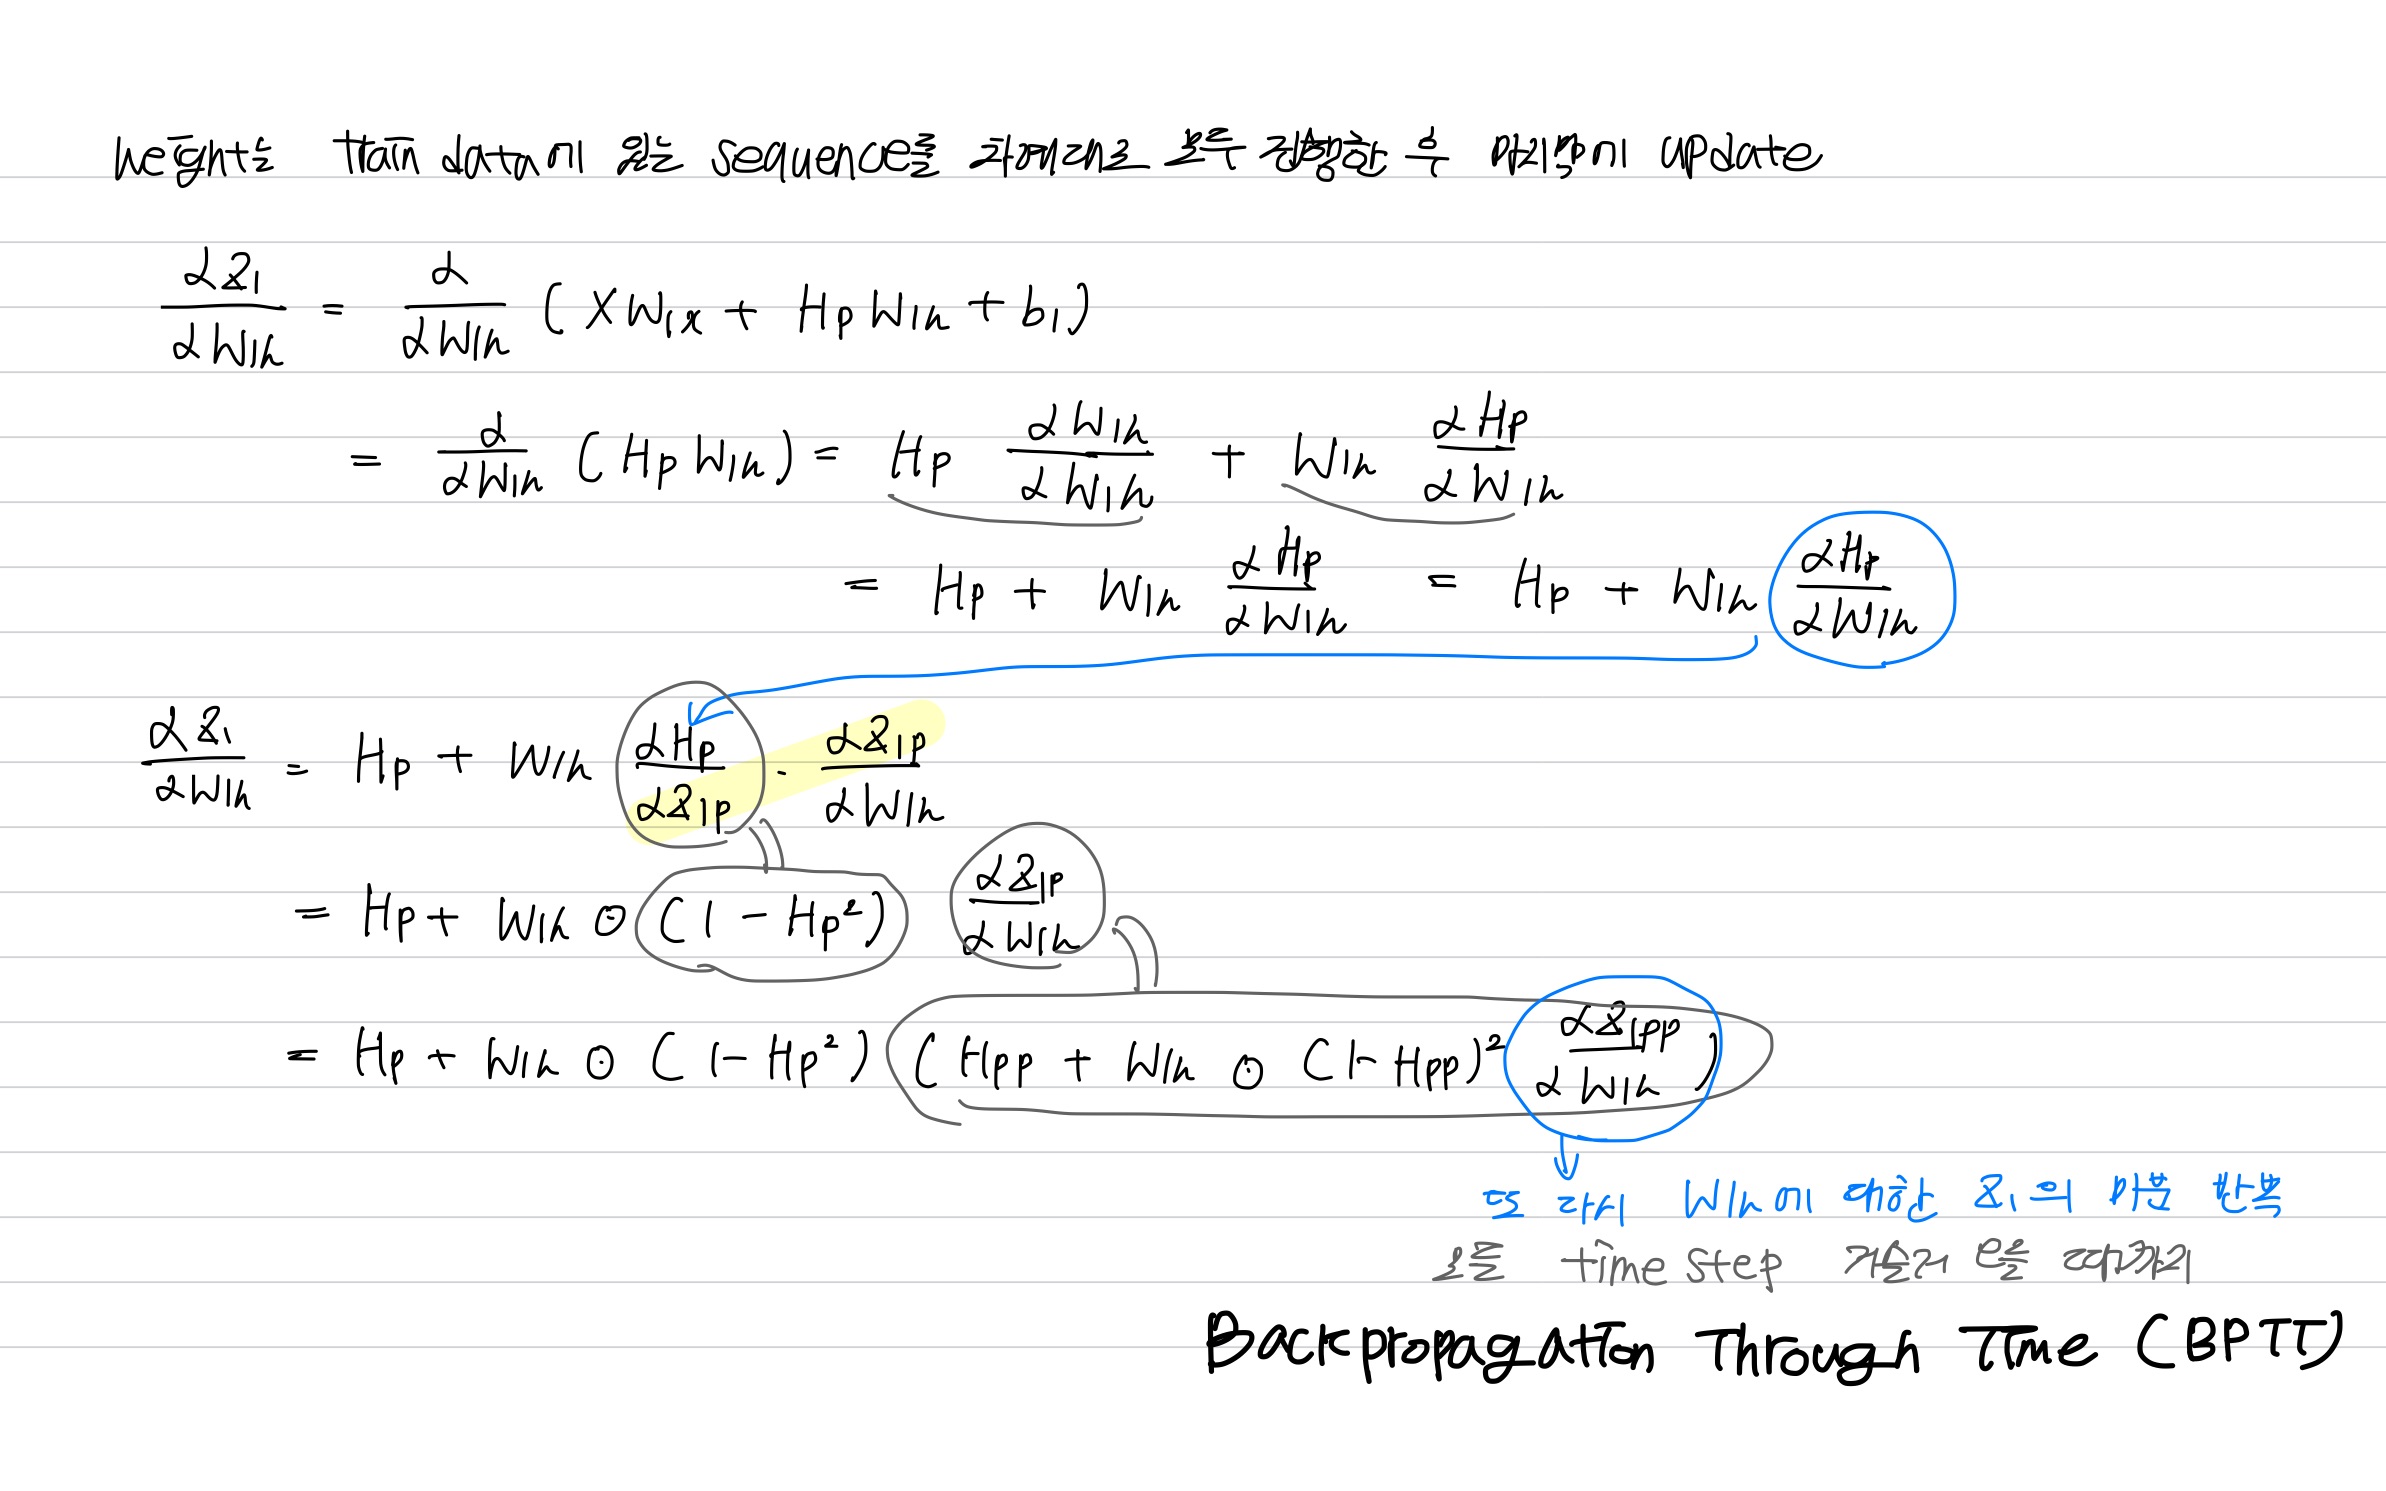 Weight는 train data에 있는 sequence를 차례대로 모두 진행한 후 마지막에 update
∂Z₁/∂W₁h = ∂/∂W₁h (XW₁x + HpW₁h + b₁)
= ∂/∂W₁h (HpW₁h) = Hp ∂W₁h/∂W₁h + W₁h ∂Hp/∂W₁h
= Hp + W₁h ∂Hp/∂W₁h = Hp + W₁h ∂Hp/∂W₁h
∂Z₁/∂W₁h = Hp + W₁h ∂Hp/∂Z₁p · ∂Z₁p/∂W₁h
= Hp + W₁h ⊙ (1 - Hp²) ∂Z₁p/∂W₁h
= Hp + W₁h ⊙ (1 - Hp²) (Hpp + W₁h ⊙ (1 - Hpp)² ∂Z₁pp/∂W₁h)
또 다시 W₁h에 대한 Z₁의 미분 반복
모든 time step 거슬러 time step
Backpropagation Through Time (BPTT)